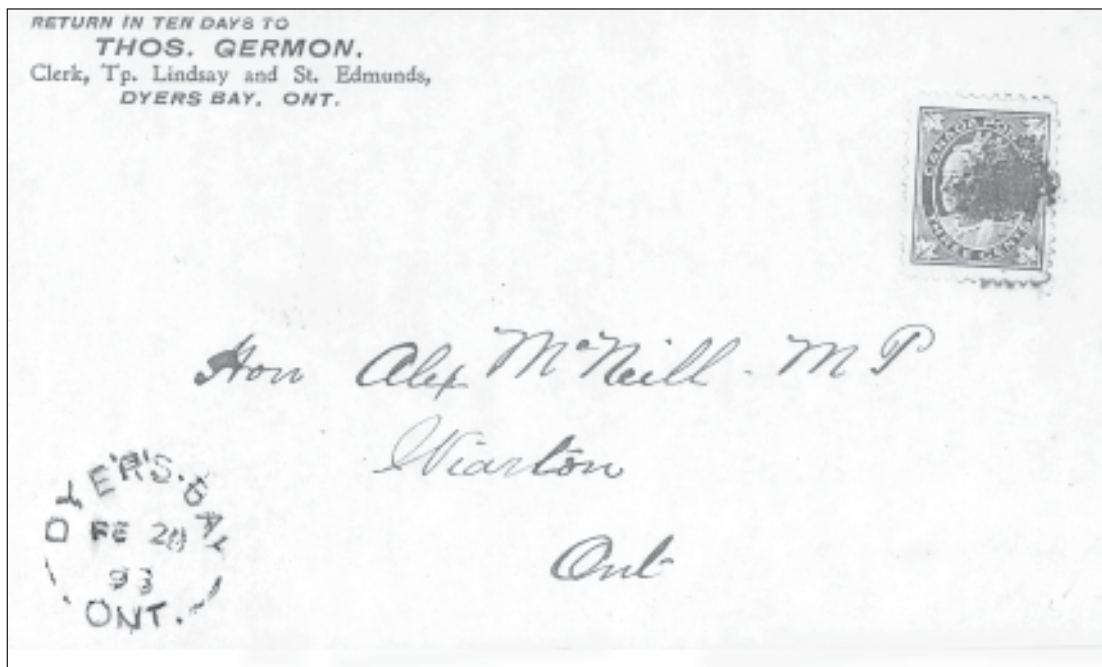 RETURN IN TEN DAYS TO
THOS. GERMON.
Clerk, Tp. Lindsay and St. Edmunds,
DYERS BAY, ONT.
CANADA
CENTS
Hon Alex McNeill. M P
Wiarton
Ont
DYER'S.BAY
FE 28
93
ONT.